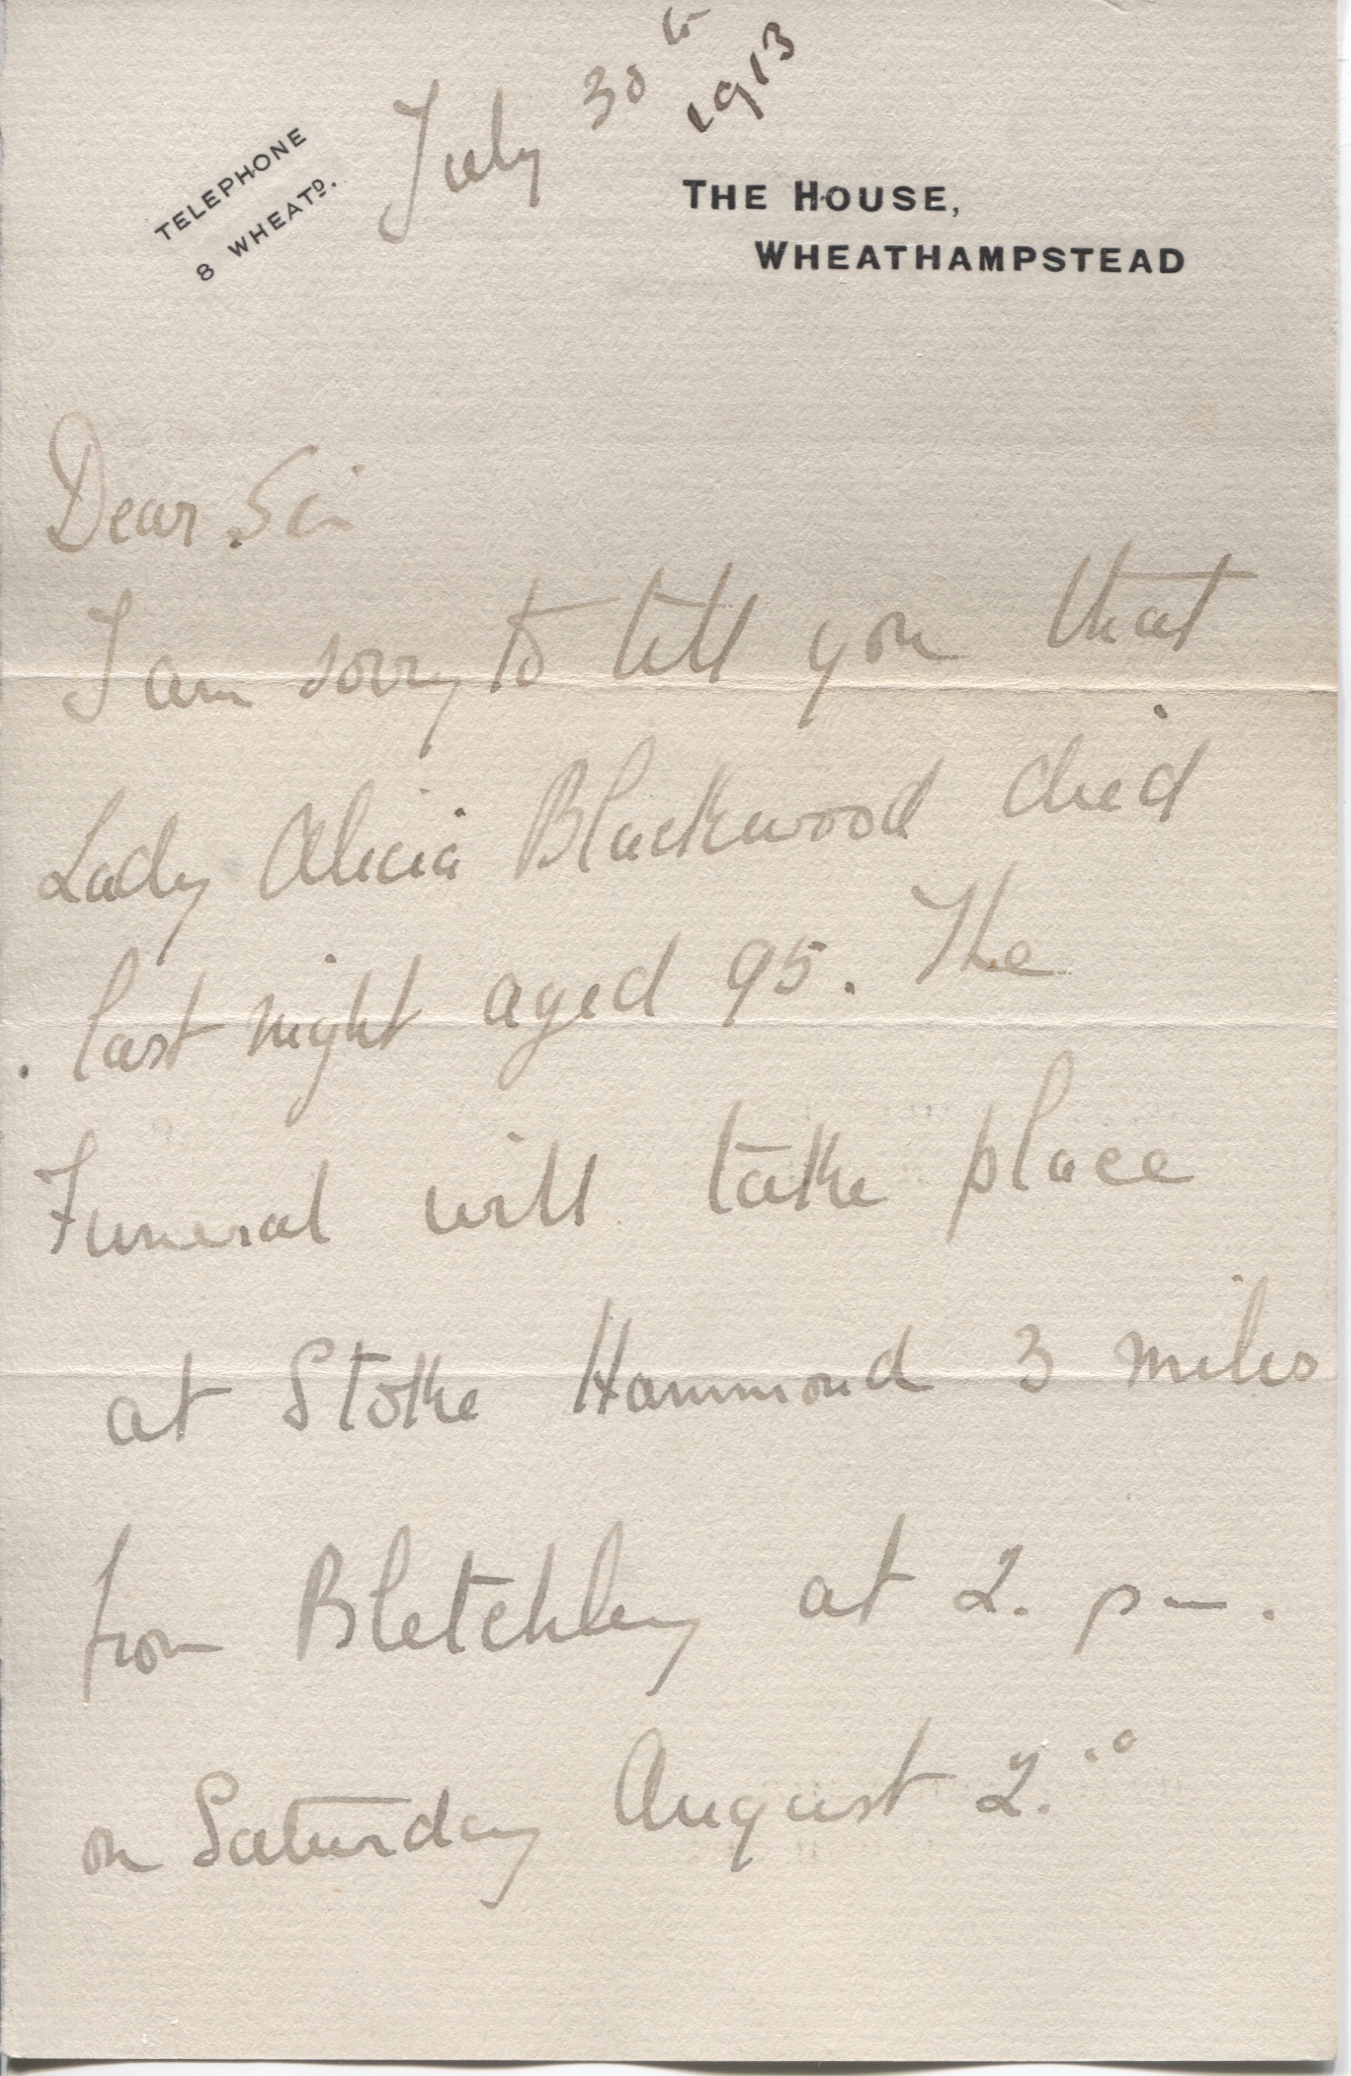 July 30th 1913
TELEPHONE
8 WHEATD.
THE HOUSE,
WHEATHAMPSTEAD
Dear Sir
I am sorry to tell you that
Lady Alicia Blackwood died
last night aged 95. The
Funeral will take place
at Stoke Hammond 3 miles
from Bletchley at 2. pm.
on Saturday August 2.